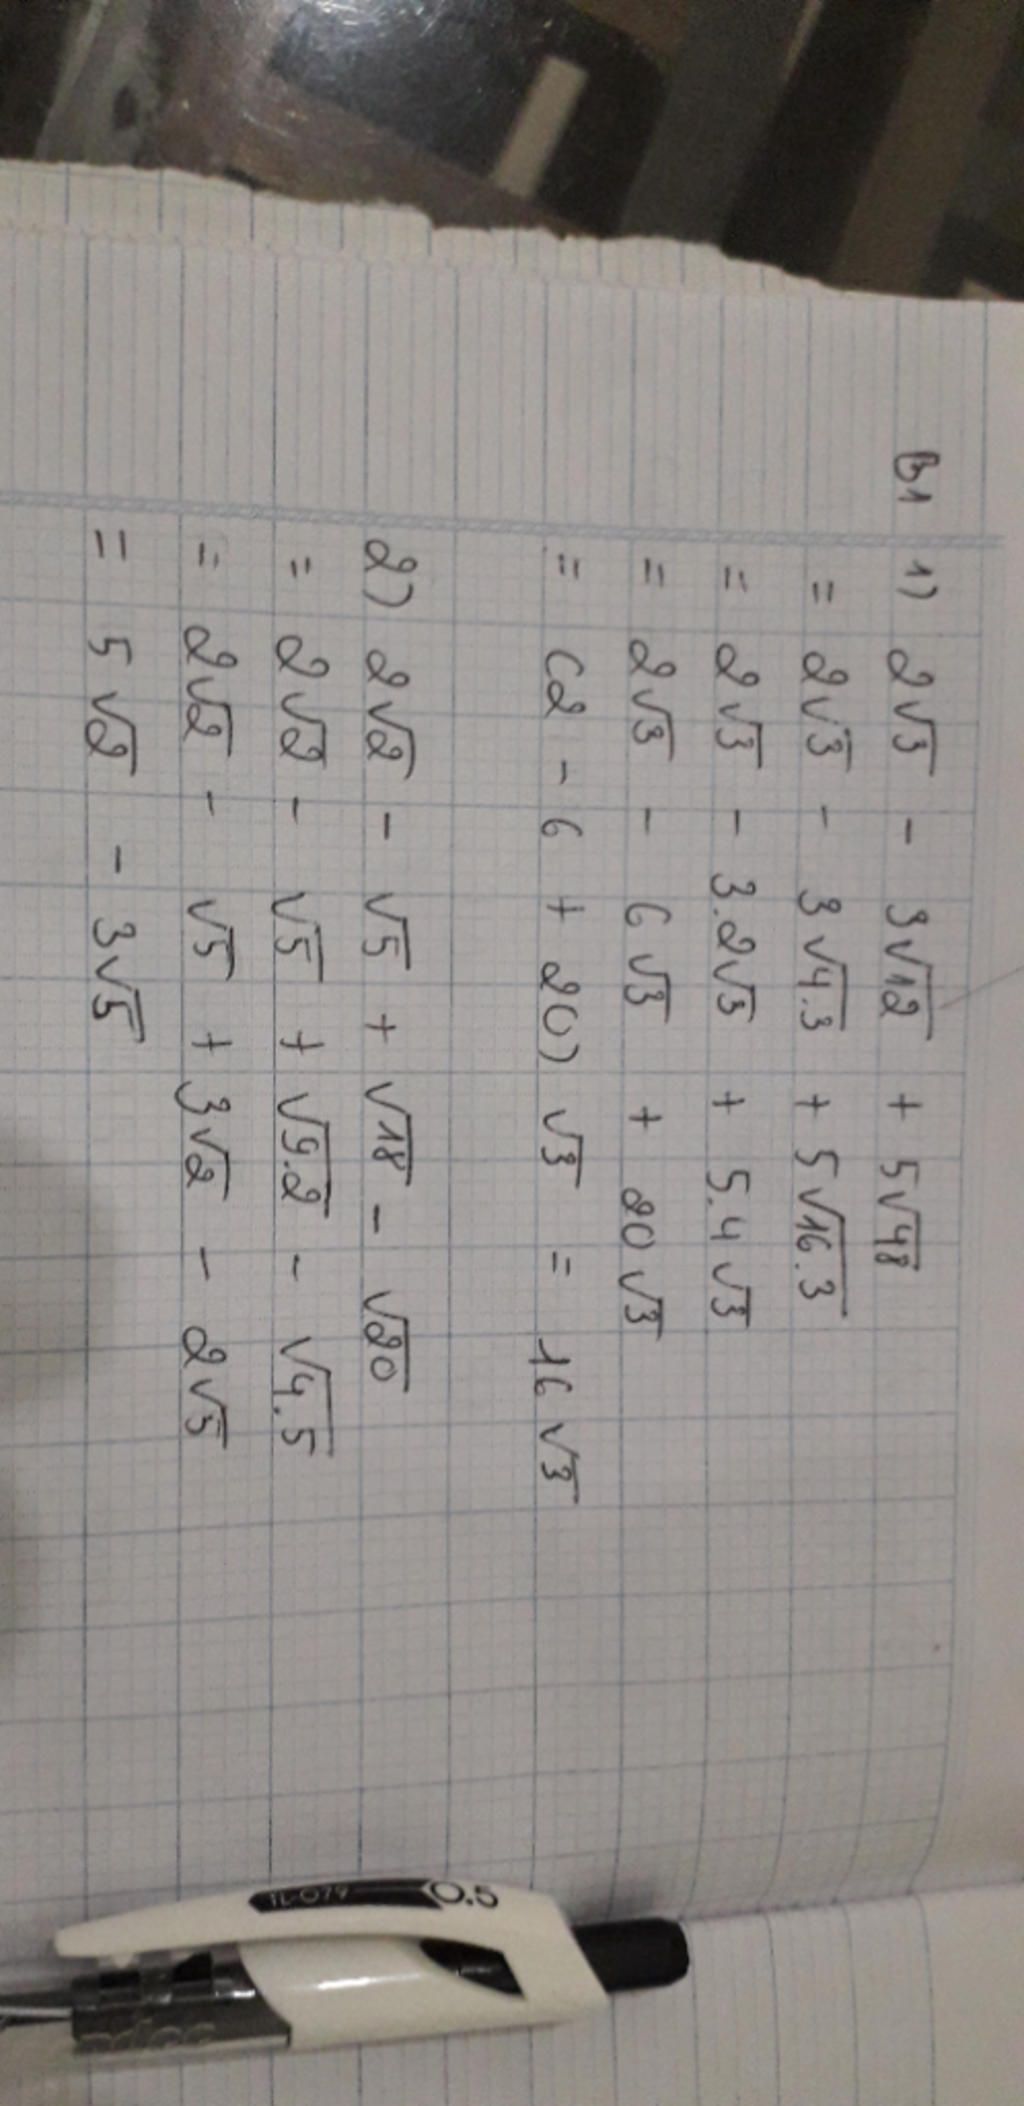 B1 1) 2√3 - 3√12 + 5√48
= 2√3 - 3√4.3 + 5√16.3
= 2√3 - 3.2√3 + 5.4√3
= 2√3 - 6√3 + 20√3
= (2 - 6 + 20) √3 = 16√3
2) 2√2 - √5 + √18 - √20
= 2√2 - √5 + √9.2 - √4.5
= 2√2 - √5 + 3√2 - 2√5
= 5√2 - 3√5
TL-079 0.5